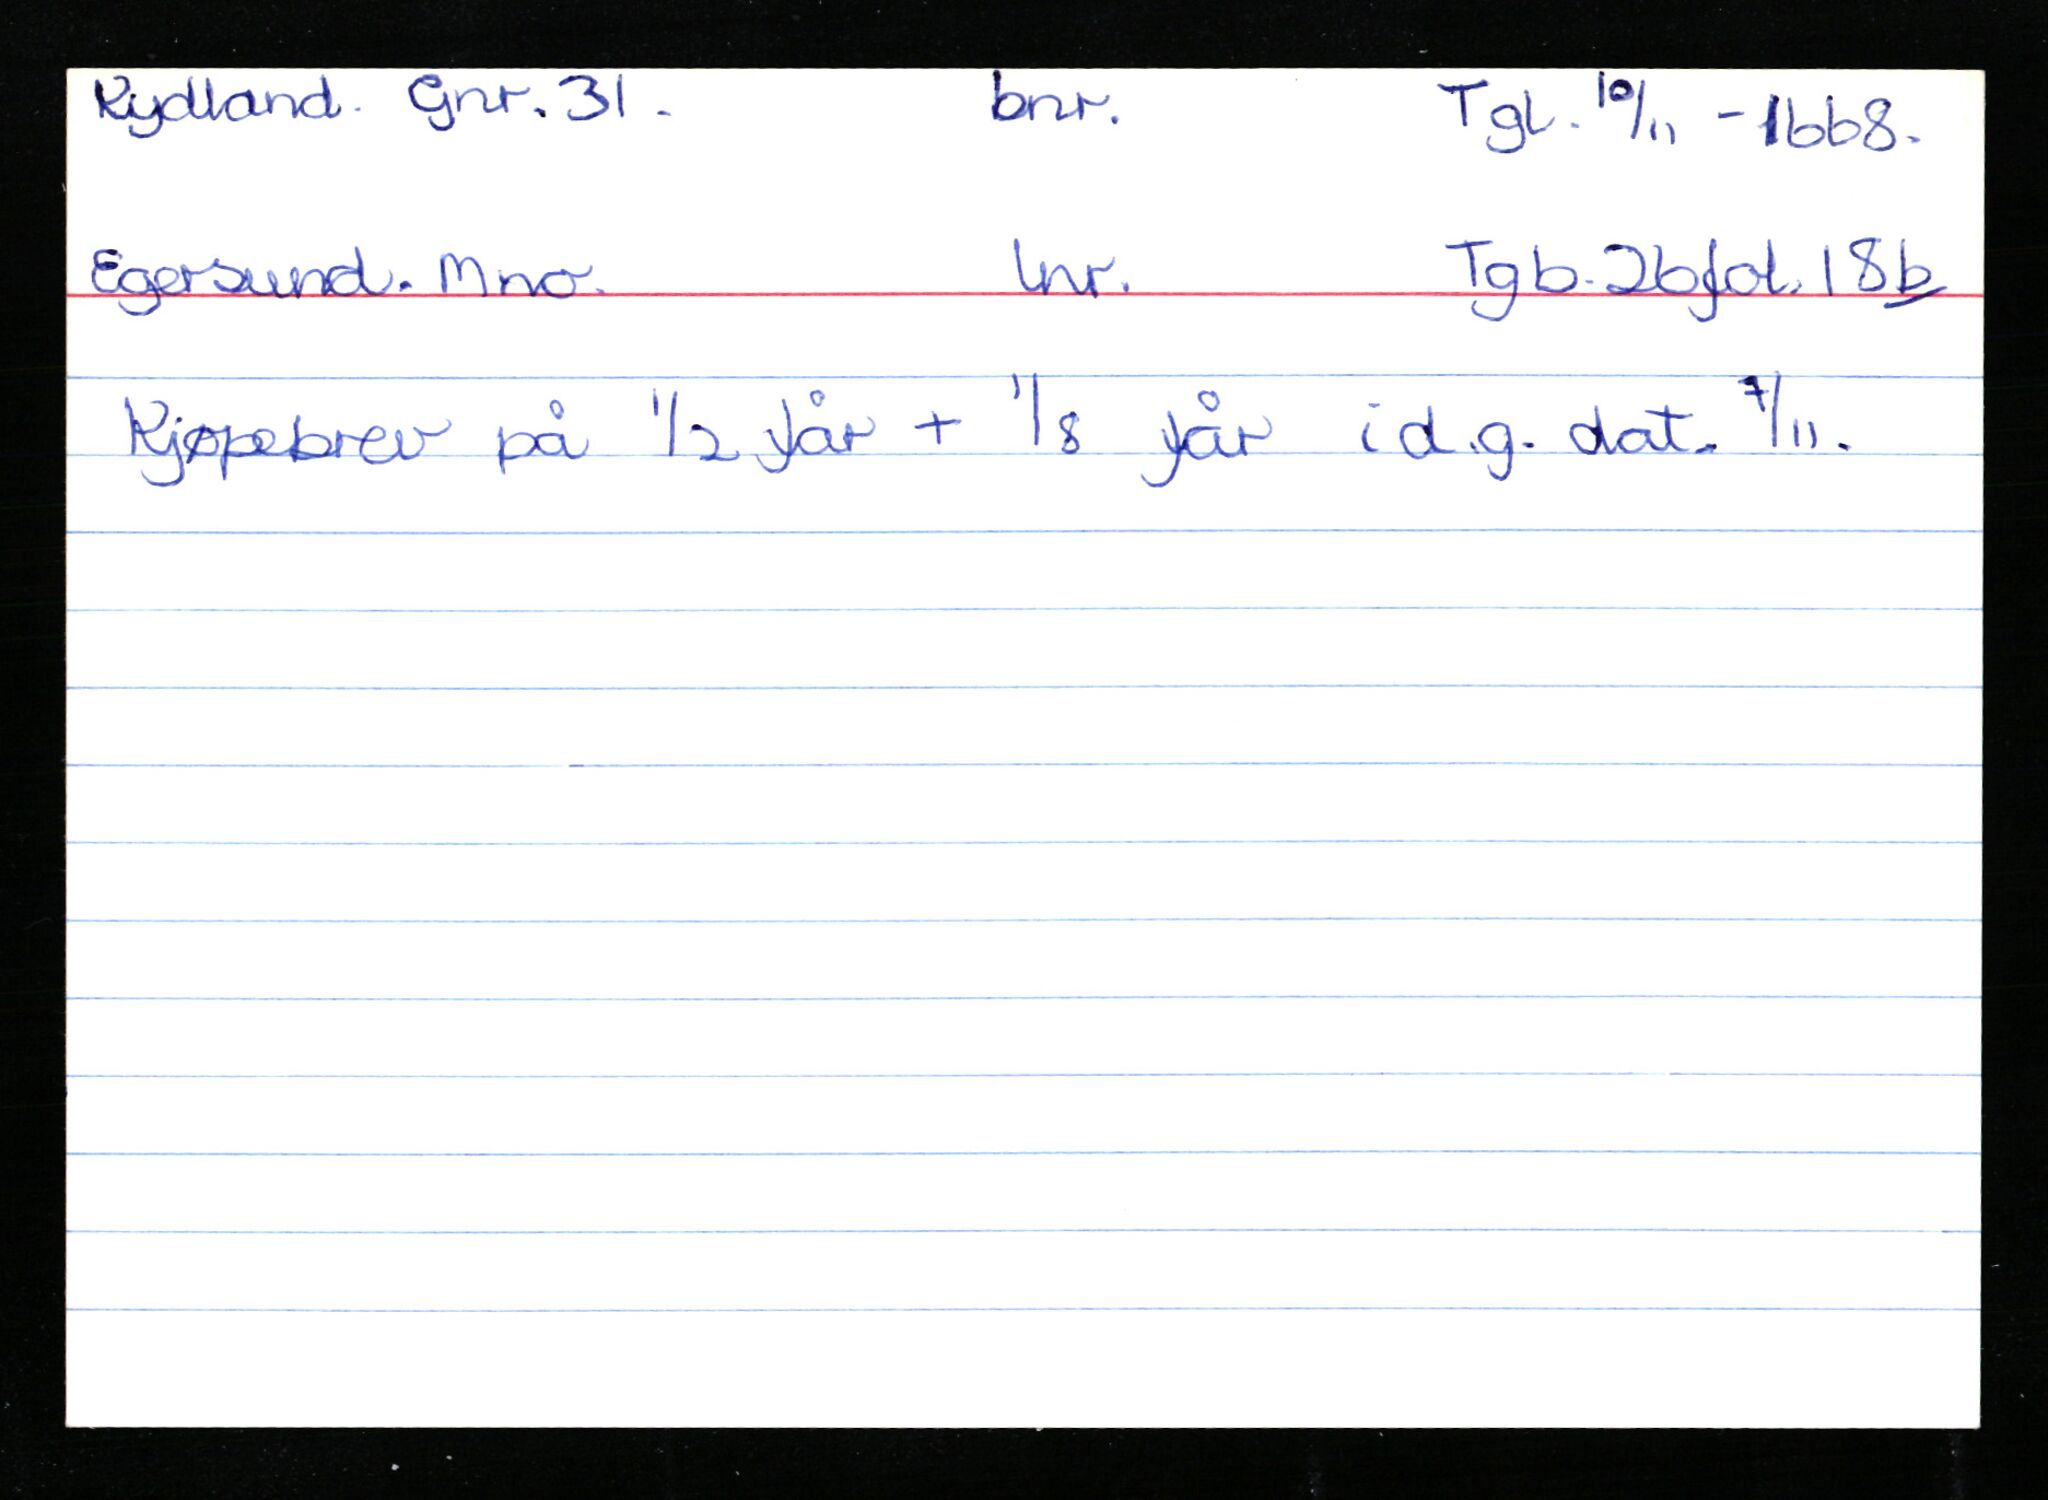 Kydland. Gnr. 31. bnr. Tgl. 10/11 - 1668.
Egersund. Mno. lnr. Tgb. 26 fol. 18b
Kjøpebrev på 1/2 får + 1/8 får i d.g. dat. 7/11.